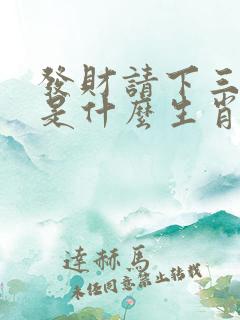 發財請下三
是什麼生肖
達赫馬
未經同意禁止转载